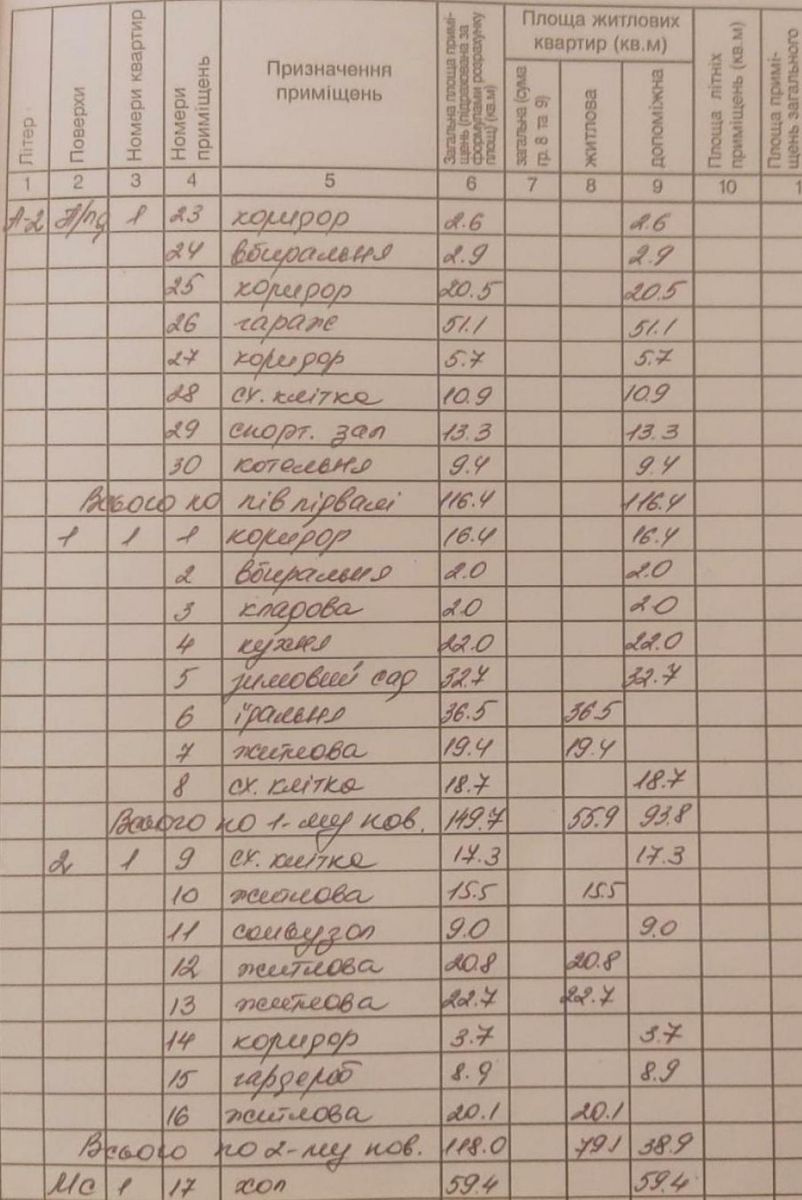 Літер
Поверхи
Номери квартир
Номери приміщень
Призначення приміщень
Загальна площа приміщень (підрахована за формулами розрахунку площ) (кв.м)
Площа житлових квартир (кв.м)
загальна (сума гр. 8 та 9)
житлова
допоміжна
Площа літніх приміщень (кв.м)
Площа примі-щень загального
1 2 3 4 5 6 7 8 9 10 1
А-2 П/пд 1 23 коридор 2.6 2.6
24 вбиральня 2.9 2.9
25 коридор 20.5 20.5
26 гараж 51.1 51.1
27 коридор 5.7 5.7
28 сх. клітка 10.9 10.9
29 спорт. зал 13.3 13.3
30 котельня 9.4 9.4
Всього по півпідвалі 116.4 116.4
1 1 1 коридор 16.4 16.4
2 вбиральня 2.0 2.0
3 кладова 2.0 2.0
4 кухня 22.0 22.0
5 зимовий сад 32.7 32.7
6 їдальня 36.5 36.5
7 житлова 19.4 19.4
8 сх. клітка 18.7 18.7
Всього по 1-му пов. 149.7 55.9 93.8
2 1 9 сх. клітка 17.3 17.3
10 житлова 15.5 15.5
11 санвузол 9.0 9.0
12 житлова 20.8 20.8
13 житлова 22.7 22.7
14 коридор 3.7 3.7
15 гардероб 8.9 8.9
16 житлова 20.1 20.1
Всього по 2-му пов. 118.0 79.1 38.9
Мс 1 17 хол 59.4 59.4